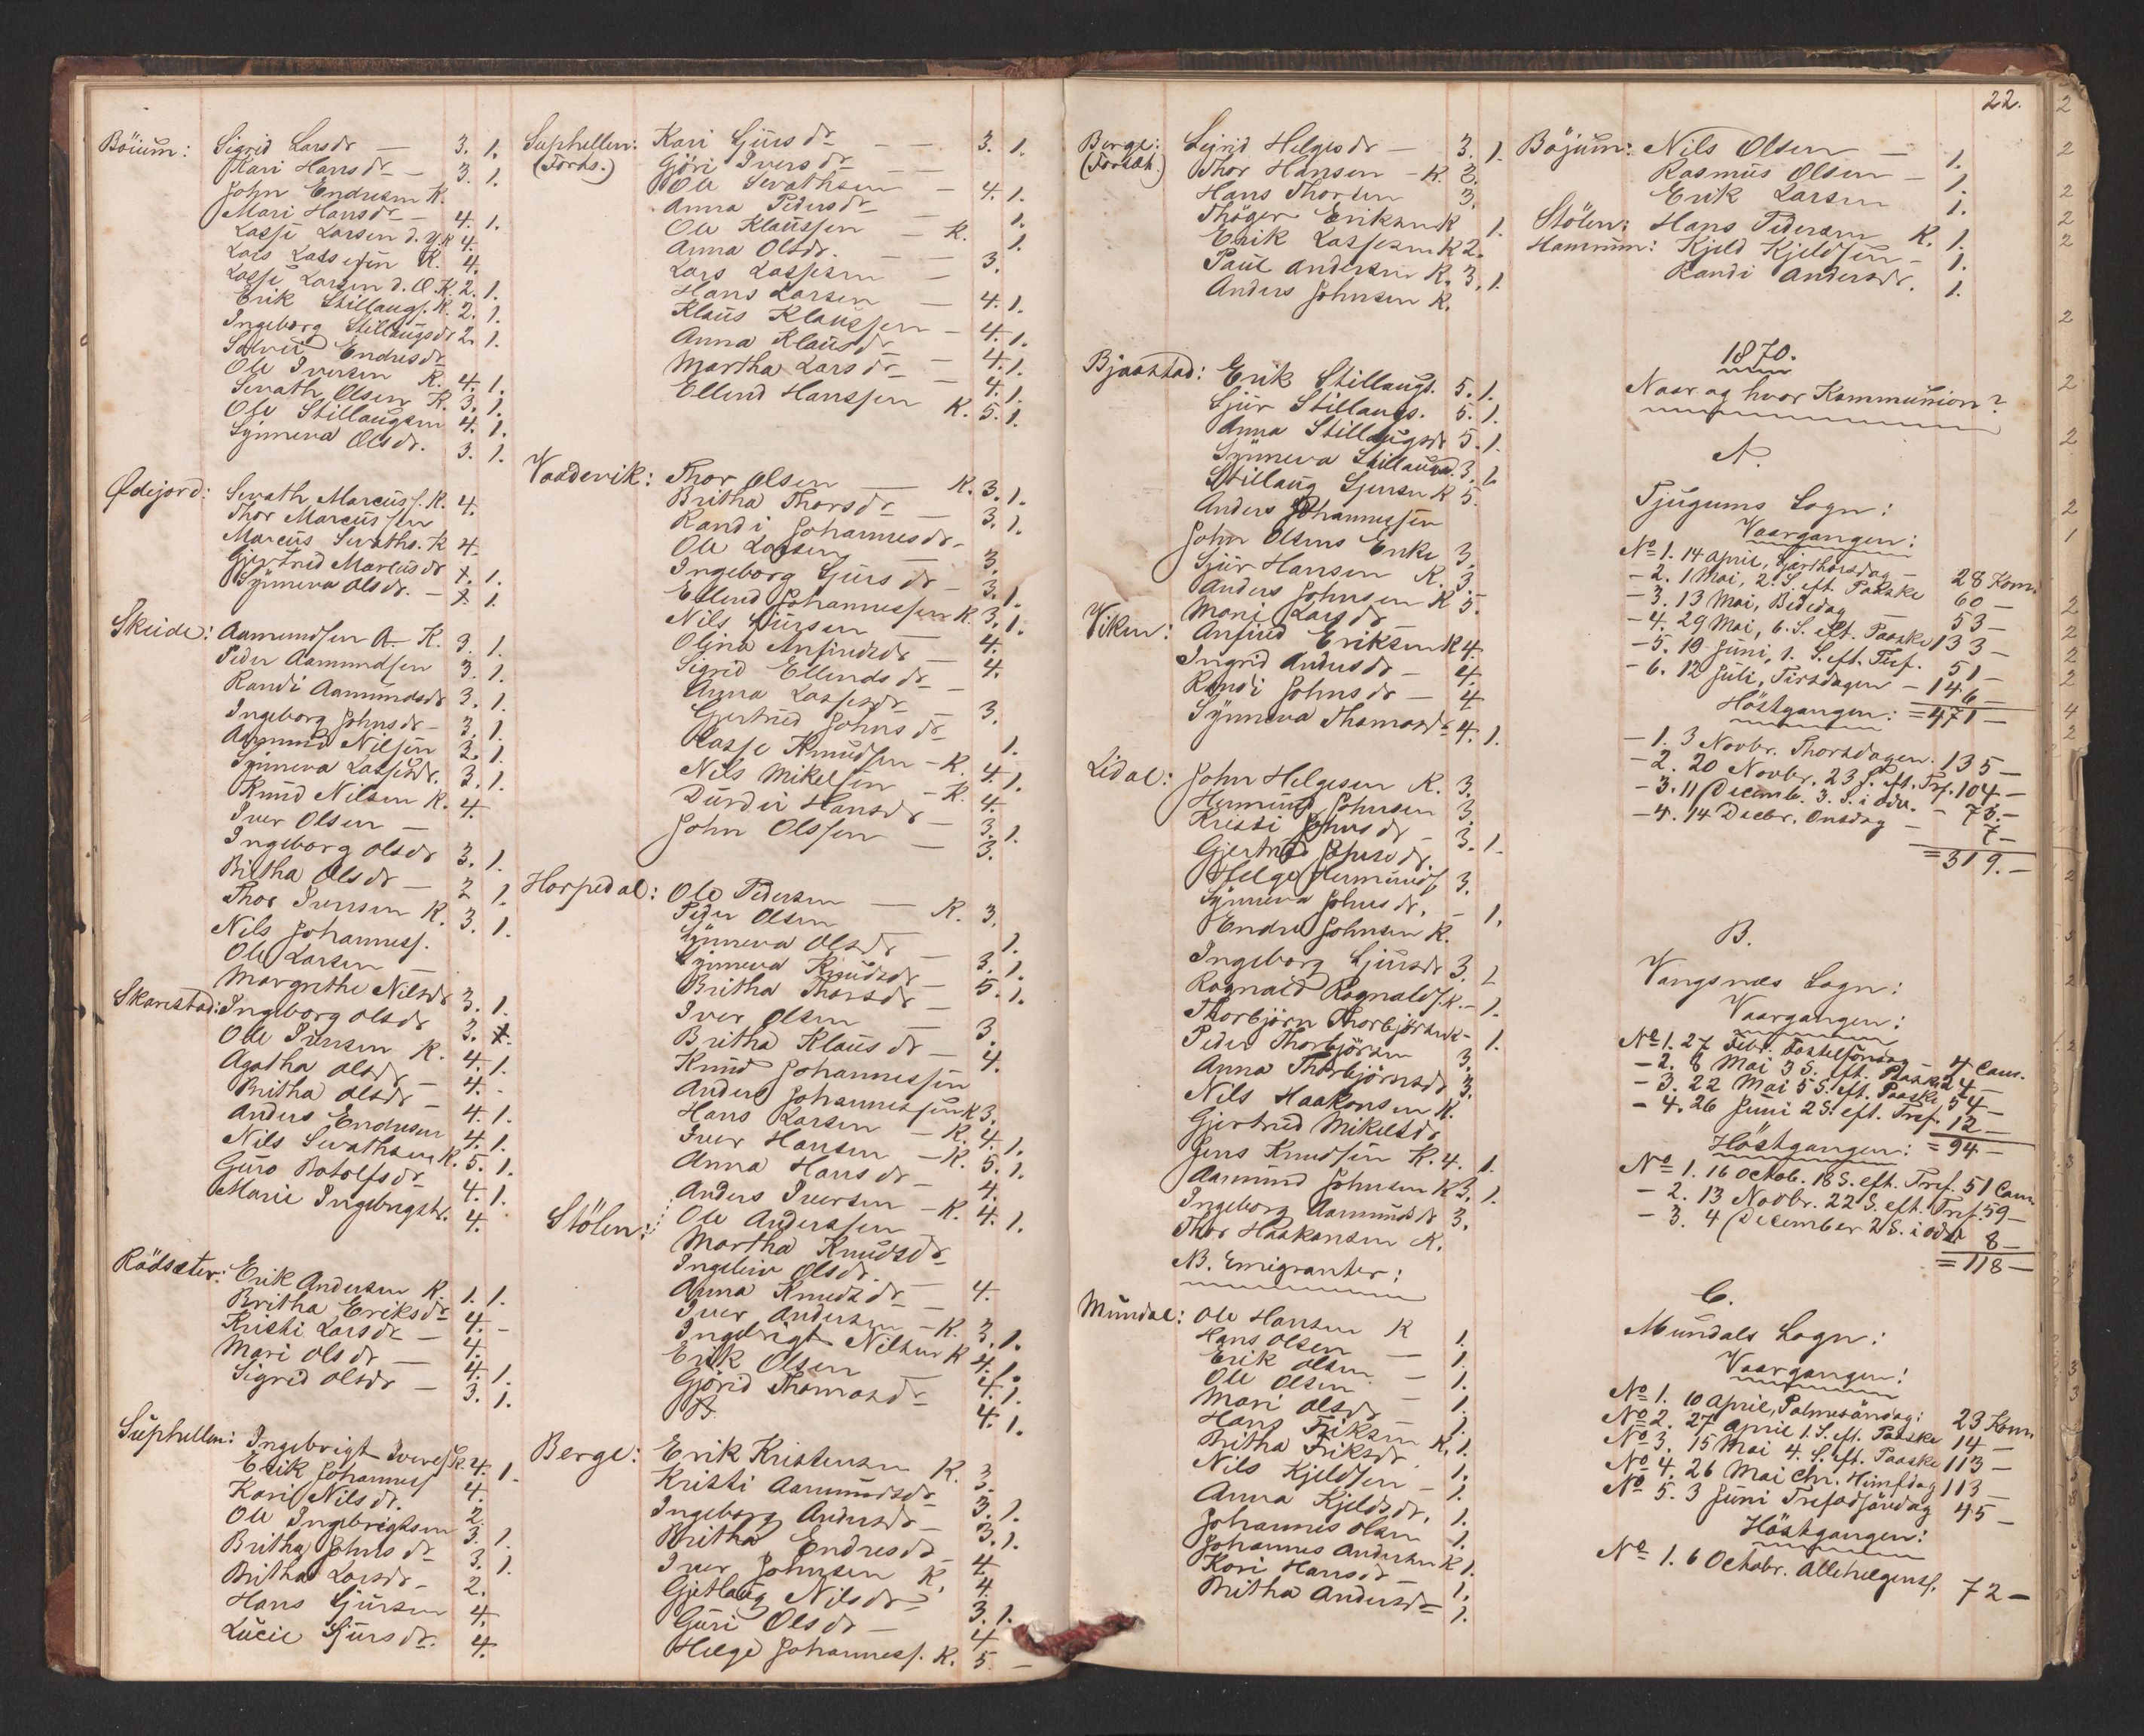 Böium: Sigrid Larsdr — 3. 1.
Kari Hansdr — 3. 1.
John Endresen K.
Mari Hansdr — 4. 1.
Lasse Larsen d. Y. K 4.
Lars Lassesen K. 4.
Lasse Larsen d. O. K. 2. 1.
Erik Stillaugs. K. 2. 1.
Ingeborg Stillaugsdr 2. 1.
Endresdr
Ole Iversen K. 4. 1.
Sevath Olsen K. 3. 1.
Ole Stillaugsen 4. 1.
Synneva Olsdr. 3. 1.
Ødejord: Sevath Marcuss. K. 4.
Thor Marcussen
Marcus Sevaths. K 4.
Gjertrud Marcusdr 4. 1.
Synneva Olsdr. — 1.
Skeide: Aamundsen A. K. 3. 1.
Peder Aamundsen 3. 1.
Randi Aamundsdr 3. 1.
Ingeborg Johnsdr — 3. 1.
Aamund Nilsen 3. 1.
Synneva Lassesdr. 3. 1.
Knud Nilsen K. 4.
Iver Olsen —
Ingeborg Olsdr 3. 1.
Britha Olsdr — 2 1.
Thor Iversen K. 3. 1.
Nils Johanness.
Ole Larsen —
Margrethe Nilsdr 3. 1.
Skarestad: Ingeborg Olsdr 3. 1.
Ole Iversen K. 4. 1.
Agatha Olsdr — 4. -
Britha Olsdr — 4. 1.
Anders Endresen 4. 1.
Nils Sevathsen K. 5. 1.
Guro Botolfsdr 4. 1.
Marie Ingebrigtsd. 4.
Rödseter: Erik Andersen K. 1. 1.
Britha Eriksdr 4. -
Kristi Larsdr — 4.
Mari Olsdr — 4. 1.
Sigrid Olsdr — 3. 1.
Suphellen: Ingebrigt Ivers. K. 4. 1.
Erik Johanness 4.
Kari Nilsdr. 2.
Ole Ingebrigtsen 3. 1.
Britha Johnsdr 3. 1.
Britha Larsdr — 2.
Hans Sjursen 4.
Lucie Sjursdr. 4.
Suphellen: Kari Sjursdr — — 3. 1.
(Forts.) Gjöri Iversdr — —
Ole Sevathsen — 4. 1.
Anna Pedersdr — 1.
Ole Klaussen — K. 1.
Anna Olsdr. — 3.
Lars Lassesen —
Hans Larsen — 4. 1.
Klaus Klaussen — 4. 1.
Anna Klausdr — 4. 1.
Martha Larsdr — 4. 1.
Ellend Hanssen K. 5. 1.
Vaadevik: Thor Olsen — K. 3. 1.
Britha Thorsdr — 3. 1.
Randi Johannesdr —
Ole Larsen — 3.
Ingeborg Sjursdr — 3. 1.
Ellend Johannessen K. 3. 1.
Nils Sjursen — 4.
Olina Anfindsdr — 4.
Sigrid Ellendsdr —
Anna Lassesdr — 3.
Gjertrud Johnsdr 1.
Lasse Knudsen — K. 4. 1.
Nils Mikelsen — K. 4.
Durdei Hansdr — 3. 1.
John Olssen — 3.
Horpedal: Ole Pedersen — K. 3.
Peder Olsen 1.
Synneva Olsdr — 3. 1.
Synneva Knudsdr — 5. 1.
Britha Thorsdr
Iver Olsen — 3.
Britha Klausdr — 4.
Knud Johannessen
Anders Johannessen K 3.
Hans Larsen — K. 4. 1.
Iver Hansen — K. 5. 1.
Anna Hansdr — 4.
Anders Iversen — K. 4. 1.
Stölen: Ole Anderssen
Martha Knudsdr
Ingeleiv Olsdr. —
Anna Knudsdr — 4.
Iver Andersen — K. 3. 1.
Ingebrigt Nilsen K 4. 1.
Erik Olsen — 4. 1.
Gjörid Thomasdr 4. 1.
Berge: Erik Kristensen K. 3.
Kristi Aamundsdr 3. 1.
Ingeborg Andersdr — 3. 1.
Britha Endresdr — 4
Iver Johnsen K. 4.
Gjetlaug Nilsdr — 3. 1.
Guri Olsdr — 4
Helge Johanness. K. 5 —
22.
Berge: Sigrid Helgesdr — 3. 1.
(Fortsæt.) Thor Hansen — K. 2.
Hans Thorsen 3.
Thöger Eriksen K 1.
Erik Lassesen K 2.
Paul Andersen K. 3. 1.
Anders Johnsen K.
Bjaastad: Erik Stillaugs. 5. 1.
Sjur Stillaugs. 5. 1.
Anna Stillaugsdr 5. 1.
Synneva Stillaugsd. 3. 1
Stillaug Sjursen K 5.
Anders Johannessen
John Olsens Enke 3.
Sjur Hansen K. 3.
Anders Johnsen K 5.
Mari Larsdr
Viken: Anfind Eriksen K 4.
Ingrid Andersdr — 4.
Randi Johnsdr — 4
Synneva Thomasdr 4. 1.
Lidal: John Helgesen K. 3.
Hermund Johnsen 3.
Kristi Johnsdr — 3. 1.
Gjertrud Johnsdr.
Helge Hermunds. 3.
Synneva Johnsdr. — 1.
Endre Johnsen K.
Ingeborg Sjursdr 3. 1
Ragnald Ragnalds. K. — 1.
Thorbjörn Thorbjörnsen K — 1.
Peder Thorbjörnsen 3.
Anna Thorbjörnsdr 3.
Nils Haakonsen K.
Gjertrud Mikelsdr
Jens Knudsen K. 4. 1.
Aamund Johnsen K 3. 1.
Ingeborg Aamundsdr 3.
Thor Haakonsen K.
NB. Emigranter:
Mundal: Ole Hansen K 1.
Hans Olsen — 1.
Erik Olsen — 1.
Ole Olsen — 1.
Mari Olsdr 1.
Hans Eriksen K. 1.
Britha Eriksdr. 1.
Nils Kjeldsen — 1.
Anna Kjeldsdr. 1.
Johannes Olsen 1.
Johannes Andersen K 1.
Kari Hansdr — 1.
Britha Andersdr 1.
Böjum: Nils Olsen — 1.
Rasmus Olsen — 1.
Erik Larsen 1.
Stölen: Hans Pedersen K. 1.
Hamrum: Kjeld Kjeldsen — 1.
Randi Andersdr. 1.
1870.
Naar og hvor Kommunion?
A.
Tjugums Sogn:
Vaargangen:
No 1. 14 April, Skjærthorsdag — 28 Kom.
- 2. 1 Mai, 2. S. eft. Paaske 60 —
- 3. 13 Mai, Bededag — 53 —
- 4. 29 Mai, 6. S. eft. Paaske 133 —
- 5. 19 Juni, 1. S. eft. Tref. 51 —
- 6. 12 Juli, Tirsdagen — 146 —
= 471 —
Höstgangen:
- 1. 3 Novbr. Thorsdagen. 135 —
- 2. 20 Novbr. 23 S. eft. Tref. 104 —
- 3. 11 Decemb. 3. S. i Adv. — 73. —
- 4. 14 Decbr. Onsdag — 7 —
= 319. —
B.
Vangsnæs Sogn:
Vaargangen:
No 1. 27 Febr. Fastelsöndag — 4 Com.
- 2. 8 Mai 3 S. eft. Paaske 24 —
- 3. 22 Mai 5 S. eft. Paaske 54 —
- 4. 26 Juni 2 S. eft. Tref. 12 —
= 94 —
Höstgangen:
No 1. 16 Octob. 18 S. eft. Tref. 51 Com
- 2. 13 Novbr. 22 S. eft. Tref. 59 —
- 3. 4 December 2 S. i Adv 8 —
= 118 —
C.
Mundals Sogn:
Vaargangen:
No 1. 10 April, Palmesöndag: 23 Kom
No 2. 27 April 1. S. eft. Paaske 14 —
No 3. 15 Mai 4. S. eft. Paaske 113 —
No 4. 26 Mai Chr. Himfdag 113 —
No 5. 3 Juni Trefoldsöndag 45 —
Höstgangen:
No 1. 6 Octobr. Allehelgens. 72 —